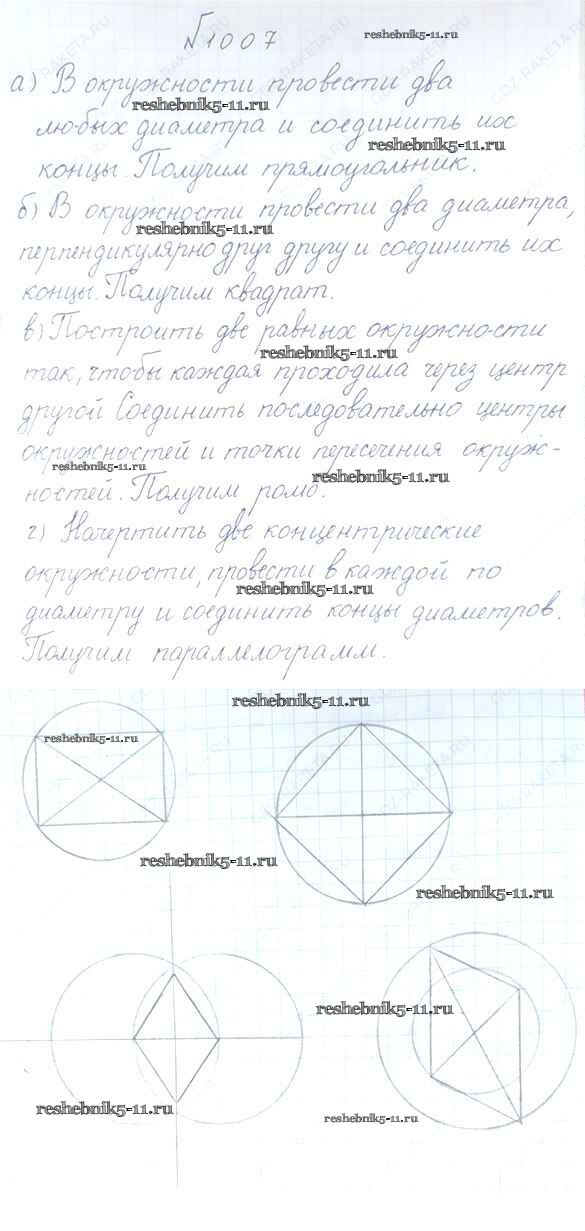 №1007
reshebnik5-11.ru
а) В окружности провести два
reshebnik5-11.ru
любых диаметра и соединить их
reshebnik5-11.ru
концы. Получим прямоугольник.
б) В окружности провести два диаметра,
reshebnik5-11.ru
перпендикулярно друг другу и соединить их
концы. Получим квадрат.
в) Построить две равных окружности
reshebnik5-11.ru
так, чтобы каждая проходила через центр
другой Соединить последовательно центры
окружностей и точки пересечения окруж-
reshebnik5-11.ru
reshebnik5-11.ru
ностей. Получим ромб.
г) Начертить две концентрические
окружности, провести в каждой по
reshebnik5-11.ru
диаметру и соединить концы диаметров.
Получим параллелограмм.
reshebnik5-11.ru
reshebnik5-11.ru
reshebnik5-11.ru
reshebnik5-11.ru
reshebnik5-11.ru
reshebnik5-11.ru
reshebnik5-11.ru